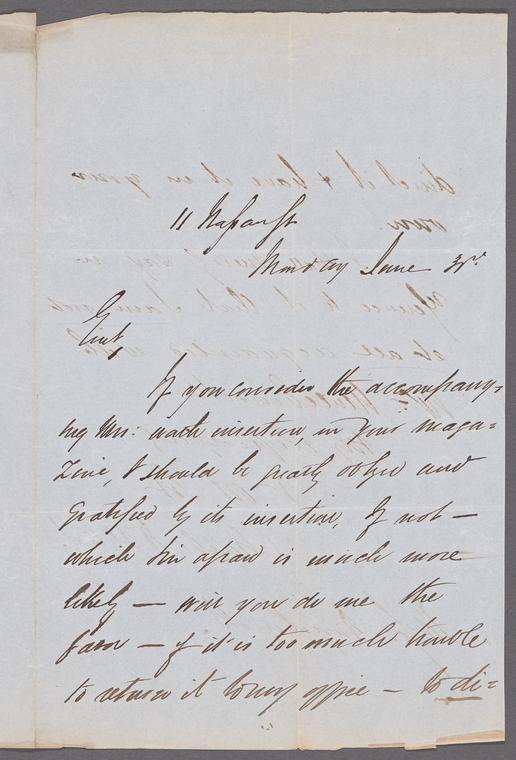 11 Nassau St
Monday June 3rd.
Gent,
If you consider the accompany=
ing Mss: worth insertion, in your maga=
zine, I should be greatly obliged and
gratified by its insertion, If not —
which I'm afraid is much more
likely — will you do me the
favor — if it is too much trouble
to return it to my office — to di=